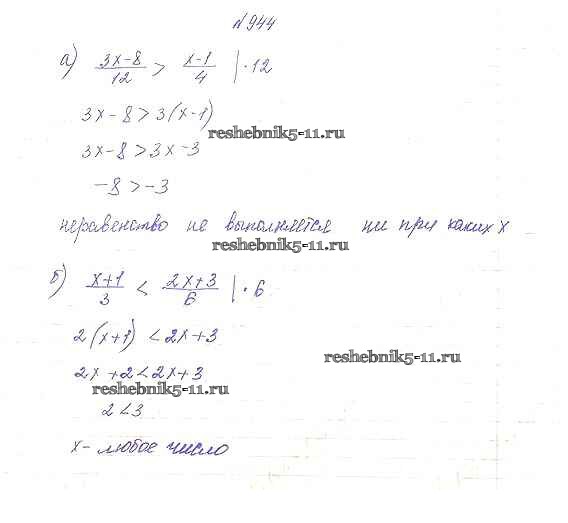 №944
а) (3x-8)/12 > (x-1)/4 | · 12
3x - 8 > 3(x-1)
reshebnik5-11.ru
3x-8 > 3x-3
-8 > -3
неравенство не выполняется ни при каких x
reshebnik5-11.ru
б) (x+1)/3 < (2x+3)/6 | · 6
2(x+1) < 2x+3
reshebnik5-11.ru
2x+2 < 2x+3
reshebnik5-11.ru
2 < 3
x - любое число